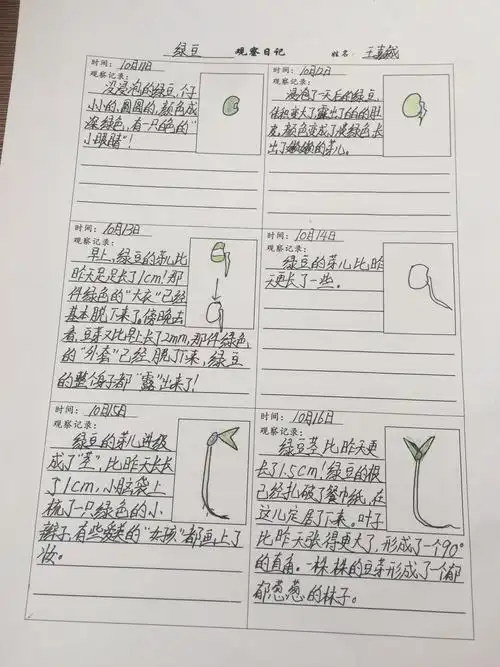 绿豆 观察日记 姓名：王嘉铖
时间：10月11日
观察记录：
没浸泡的绿豆，个子
小小的，圆圆的，颜色成
深绿色，有一只白色的"
小眼睛"！
时间：10月12日
观察记录：
浸泡了一天后的绿豆，
体积变大了，露出了白白的肚
皮，颜色变成了浅绿色，长
出了嫩嫩的芽儿。
时间：10月13日
观察记录：
早上，绿豆的芽儿比
昨天足足长了1cm！那
件绿色的"大衣"已经
基本脱下来了。傍晚去
看，豆芽又比早上长了2mm，那件绿色
的"外套"已经脱了下来，绿豆
的整个身子都"露"出来了！
时间：10月14日
观察记录：
绿豆的芽儿比昨
天更长了一些。
时间：10月15日
观察记录：
绿豆的芽儿进级
成了"茎"，比昨天长长
了1cm，小脑袋上
梳了一只绿色的小
辫子，有些爱美的"女孩"都画上了
妆。
时间：10月16日
观察记录：
绿豆茎比昨天更
长了1.5cm！绿豆的根
已经扎破了餐巾纸，在
这儿定居了下来。叶子
比昨天张得更大了，形成了一个90°
的直角。一株株的豆芽形成了一个郁
郁葱葱的林子。